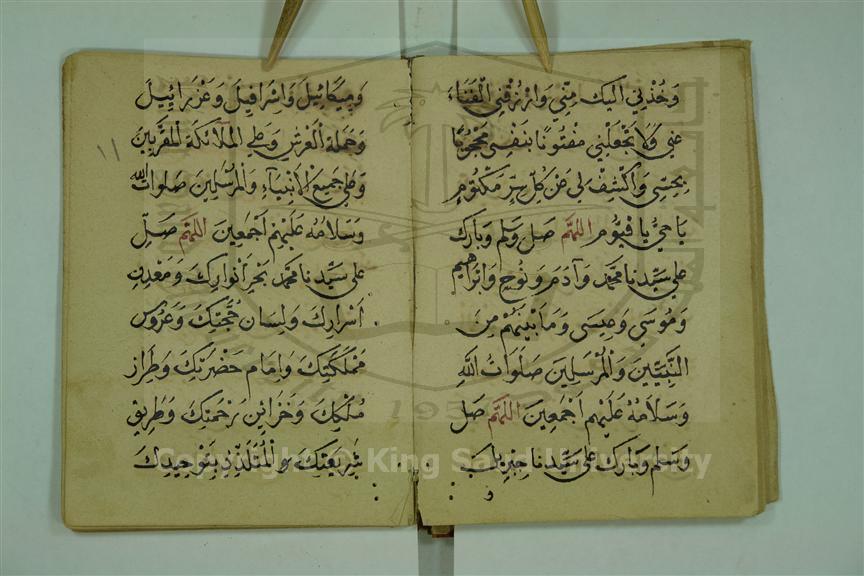 وَخُذْنِي اِلَيْكَ مِنِّي وَارْزُقْنِي الْفَنَاءَ
عَنِّي وَلَا تَجْعَلْنِي مَفْتُونًا بِنَفْسِي مَحْجُوبًا
بِحِسِّي وَاكْشِفْ لِي عَنْ كُلِّ سِرٍّ مَكْتُومٍ
يَا حَيُّ يَا قَيُّومُ اللّٰهُمَّ صَلِّ وَسَلِّمْ وَبَارِكْ
عَلَى سَيِّدِنَا مُحَمَّدٍ وَآدَمَ وَنُوحٍ وَاِبْرَاهِيمَ
وَمُوسَى وَعِيسَى وَمَا بَيْنَهُمْ مِنَ
النَّبِيِّينَ وَالْمُرْسَلِينَ صَلَوَاتُ اللّٰهِ
وَسَلَامُهُ عَلَيْهِمْ اَجْمَعِينَ اللّٰهُمَّ صَلِّ
وَسَلِّمْ وَبَارِكْ عَلَى سَيِّدِنَا جِبْرِيلَ
و
وَمِيكَائِيلَ وَاِسْرَافِيلَ وَعَزْرَائِيلَ
وَحَمَلَةِ الْعَرْشِ وَعَلَى الْمَلَائِكَةِ الْمُقَرَّبِينَ
١١
وَعَلَى جَمِيعِ الْاَنْبِيَاءِ وَالْمُرْسَلِينَ صَلَوَاتُ اللّٰهِ
وَسَلَامُهُ عَلَيْهِمْ اَجْمَعِينَ اللّٰهُمَّ صَلِّ
عَلَى سَيِّدِنَا مُحَمَّدٍ بَحْرِ اَنْوَارِكَ وَمَعْدِنِ
اَسْرَارِكَ وَلِسَانِ حُجَّتِكَ وَعَرُوسِ
مَمْلَكَتِكَ وَاِمَامِ حَضْرَتِكَ وَطِرَازِ
مُلْكِكَ وَخَزَائِنِ رَحْمَتِكَ وَطَرِيقِ
شَرِيعَتِكَ الْمُتَلَذِّذِ بِتَوْحِيدِكَ
1957
Copyright © King Saud University